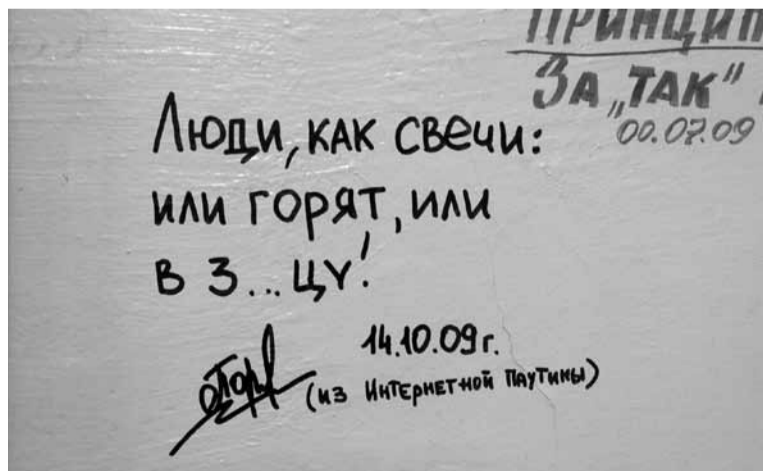 ПРИНЦИП
ЗА „ТАК“
00.07.09
Люди, как свечи:
или горят, или
в з...цу!
14.10.09г.
(из Интернетной Паутины)